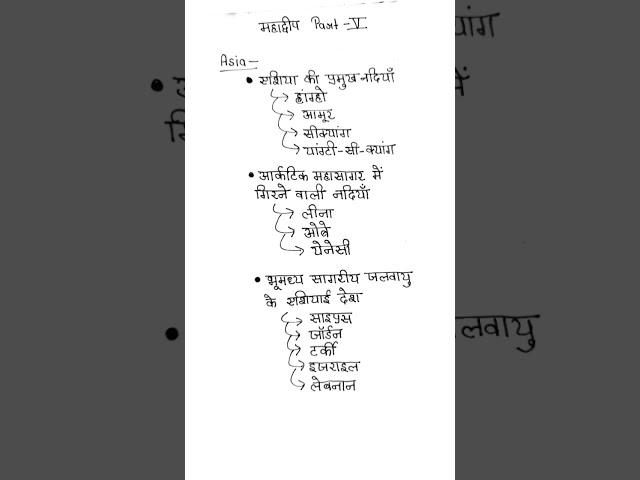 महाद्वीप Part-V
Asia-
• एशिया की प्रमुख नदियाँ
ह्वांगहो
आमूर
सीक्यांग
यांग्टी-सी-क्यांग
• आर्कटिक महासागर में
गिरने वाली नदियाँ
लीना
ओबे
येनेसी
• भूमध्य सागरीय जलवायु
के एशियाई देश
साइप्रस
जॉर्डन
टर्की
इजराइल
लेबनान